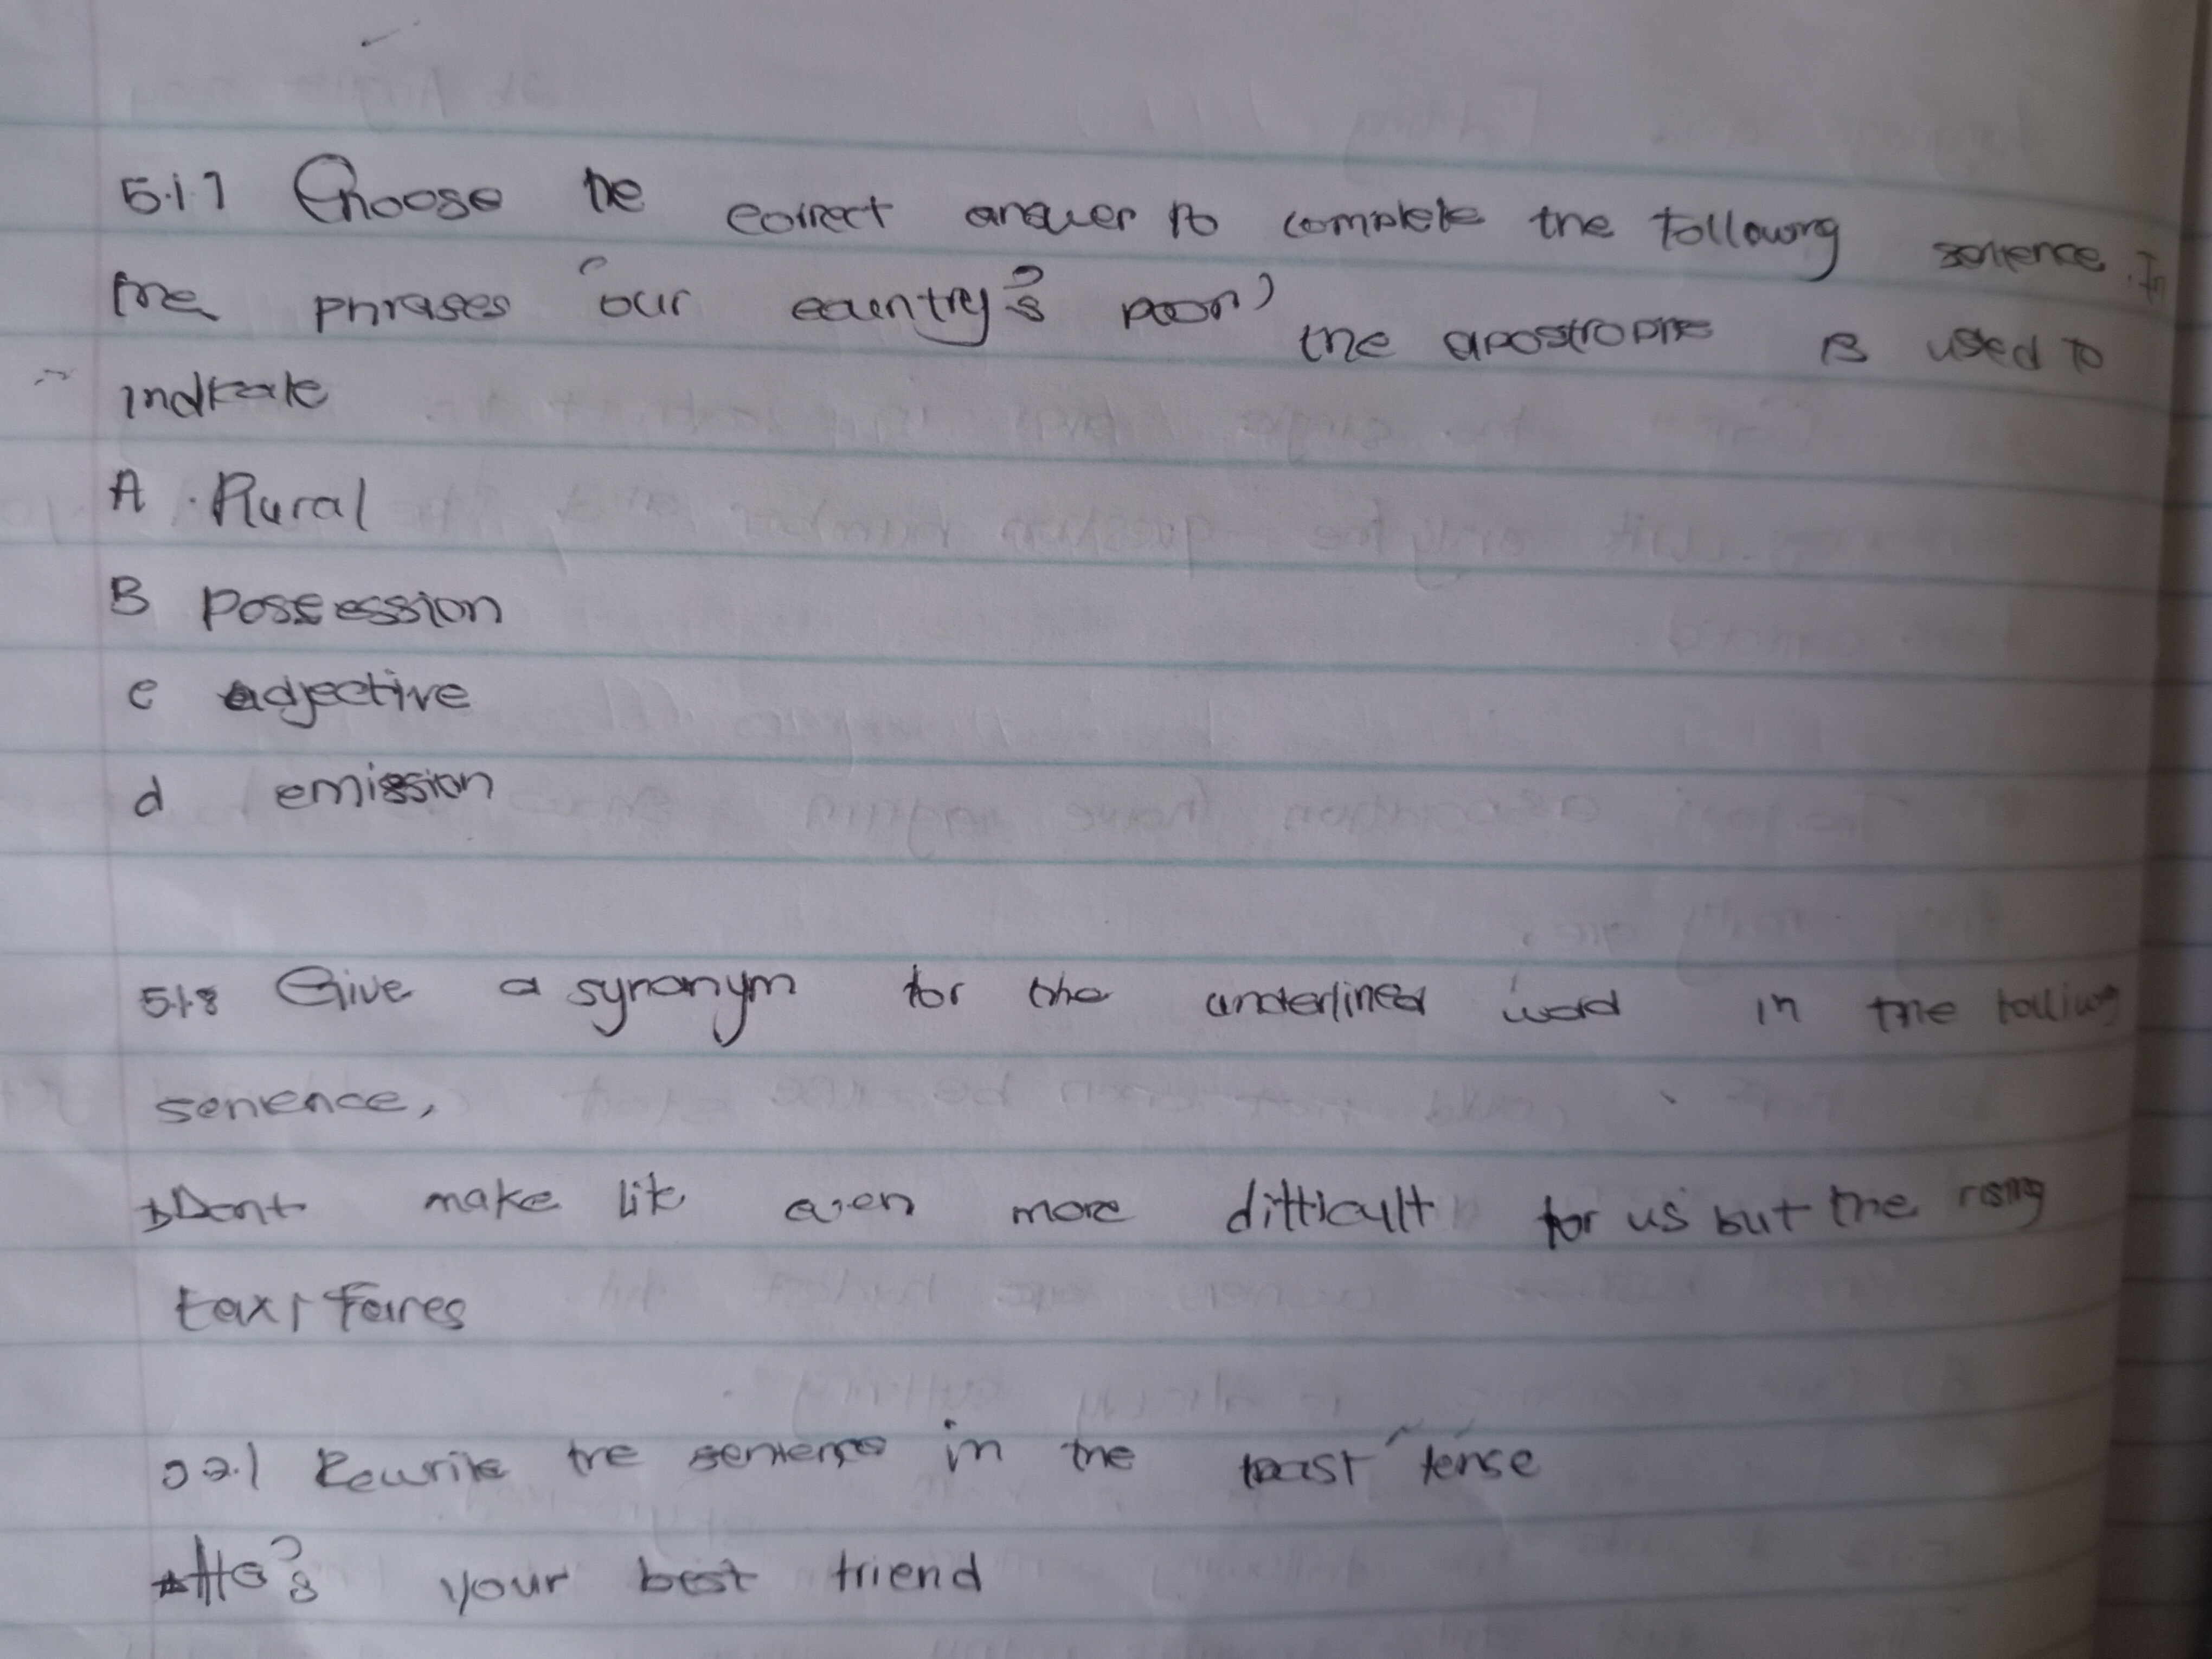 5.1.7 Choose the correct answer to complete the following sentence. In
the phrases "our country's poor) the apostrophe is used to
indicate
A. Rural
B possession
c adjective
d emission
5.1.8 Give a synonym for the underlined word in the following
sentence,
Dont make life even more difficult for us but the rising
taxi faires
5.2.1 Rewrite the sentence in the past tense
He's your best friend